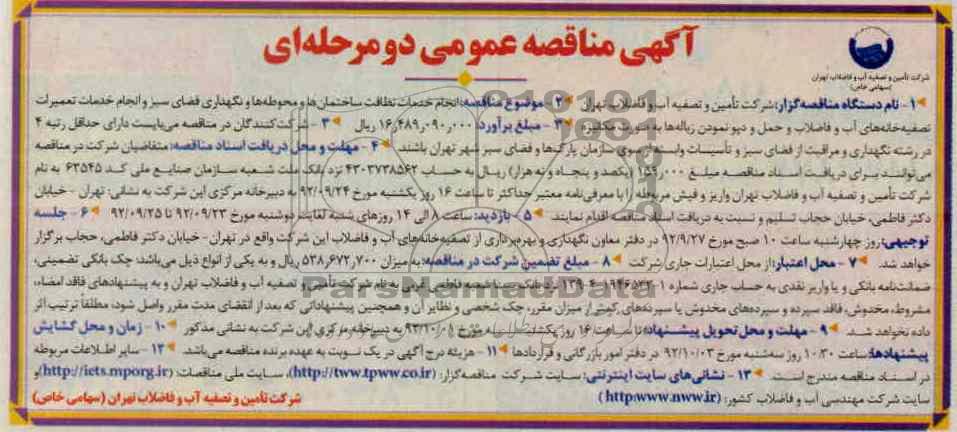 آگهی مناقصه عمومی دو مرحله‌ای
شرکت تأمین و تصفیه آب و فاضلاب تهران
(سهامی خاص)
۱- نام دستگاه مناقصه‌گزار: شرکت تأمین و تصفیه آب و فاضلاب تهران ۲- موضوع مناقصه: انجام خدمات نظافت ساختمان‌ها و محوطه‌ها و نگهداری فضای سبز و انجام خدمات تعمیرات
تصفیه‌خانه‌های آب و فاضلاب و حمل و دپو نمودن زباله‌ها به صورت مکانیزه ۳- مبلغ برآورد: ۱۶٫۴۸۹٫۰۹۰٫۰۰۰ ریال ۳- شرکت‌کنندگان در مناقصه می‌بایست دارای حداقل رتبه ۴
در رشته نگهداری و مراقبت از فضای سبز و تأسیسات وابسته از سوی سازمان پارک‌ها و فضای سبز شهر تهران باشند. ۴- مهلت و محل دریافت اسناد مناقصه: متقاضیان شرکت در مناقصه
می‌توانند برای دریافت اسناد مناقصه مبلغ ۱۵۹٫۰۰۰ (یکصد و پنجاه و نه هزار) ریال به حساب ۴۳۰۳۷۳۸۵۶۲ نزد بانک ملت شعبه سازمان صنایع ملی کد ۶۳۵۴۵ به نام
شرکت تأمین و تصفیه آب و فاضلاب تهران واریز و فیش مربوطه را با معرفی‌نامه معتبر حداکثر تا ساعت ۱۶ روز یکشنبه مورخ ۹۲/۰۹/۲۴ به دبیرخانه مرکزی این شرکت به نشانی: تهران - خیابان
دکتر فاطمی، خیابان حجاب تسلیم و نسبت به دریافت اسناد مناقصه اقدام نمایند. ۵- بازدید: ساعت ۸ الی ۱۴ روزهای شنبه لغایت دوشنبه مورخ ۹۲/۰۹/۲۳ تا ۹۲/۰۹/۲۵ ۶- جلسه
توجیهی: روز چهارشنبه ساعت ۱۰ صبح مورخ ۹۲/۹/۲۷ در دفتر معاون نگهداری و بهره‌برداری از تصفیه‌خانه‌های آب و فاضلاب این شرکت واقع در تهران- خیابان دکتر فاطمی، حجاب برگزار
خواهد شد. ۷- محل اعتبار: از محل اعتبارات جاری شرکت ۸- مبلغ تضمین شرکت در مناقصه: به میزان ۵۳۸٫۶۷۲٫۷۰۰ ریال و به یکی از انواع ذیل می‌باشد: چک بانکی تضمینی،
ضمانت‌نامه بانکی و یا واریز نقدی به حساب جاری شماره نزد بانک شعبه فاطمی غربی به نام شرکت تأمین و تصفیه آب و فاضلاب تهران و به پیشنهادهای فاقد امضاء،
مشروط، مخدوش، فاقد سپرده و سپرده‌های مخدوش یا سپرده‌های کمتر از میزان مقرر، چک شخصی و نظایر آن و همچنین پیشنهاداتی که بعد از انقضای مدت مقرر واصل شود، مطلقاً ترتیب اثر
داده نخواهد شد. ۹- مهلت و محل تحویل پیشنهاد: تا ساعت ۱۶ روز یکشنبه مورخ ۹۲/۱۰/۰۱ به دبیرخانه مرکزی این شرکت به نشانی مذکور ۱۰- زمان و محل گشایش
پیشنهادها: ساعت ۱۰:۳۰ روز سه‌شنبه مورخ ۹۲/۱۰/۰۳ در دفتر امور بازرگانی و قراردادها ۱۱- هزینه درج آگهی در یک نوبت به عهده برنده مناقصه می‌باشد. ۱۲- سایر اطلاعات مربوطه
در اسناد مناقصه مندرج است. ۱۳- نشانی‌های سایت اینترنتی: سایت شرکت مناقصه‌گزار: (http://tww.tpww.co.ir)، سایت ملی مناقصات: (http://iets.mporg.ir) و
سایت شرکت مهندسی آب و فاضلاب کشور: (http:www.nww.ir)
شرکت تأمین و تصفیه آب و فاضلاب تهران (سهامی خاص)
ParsNamadData